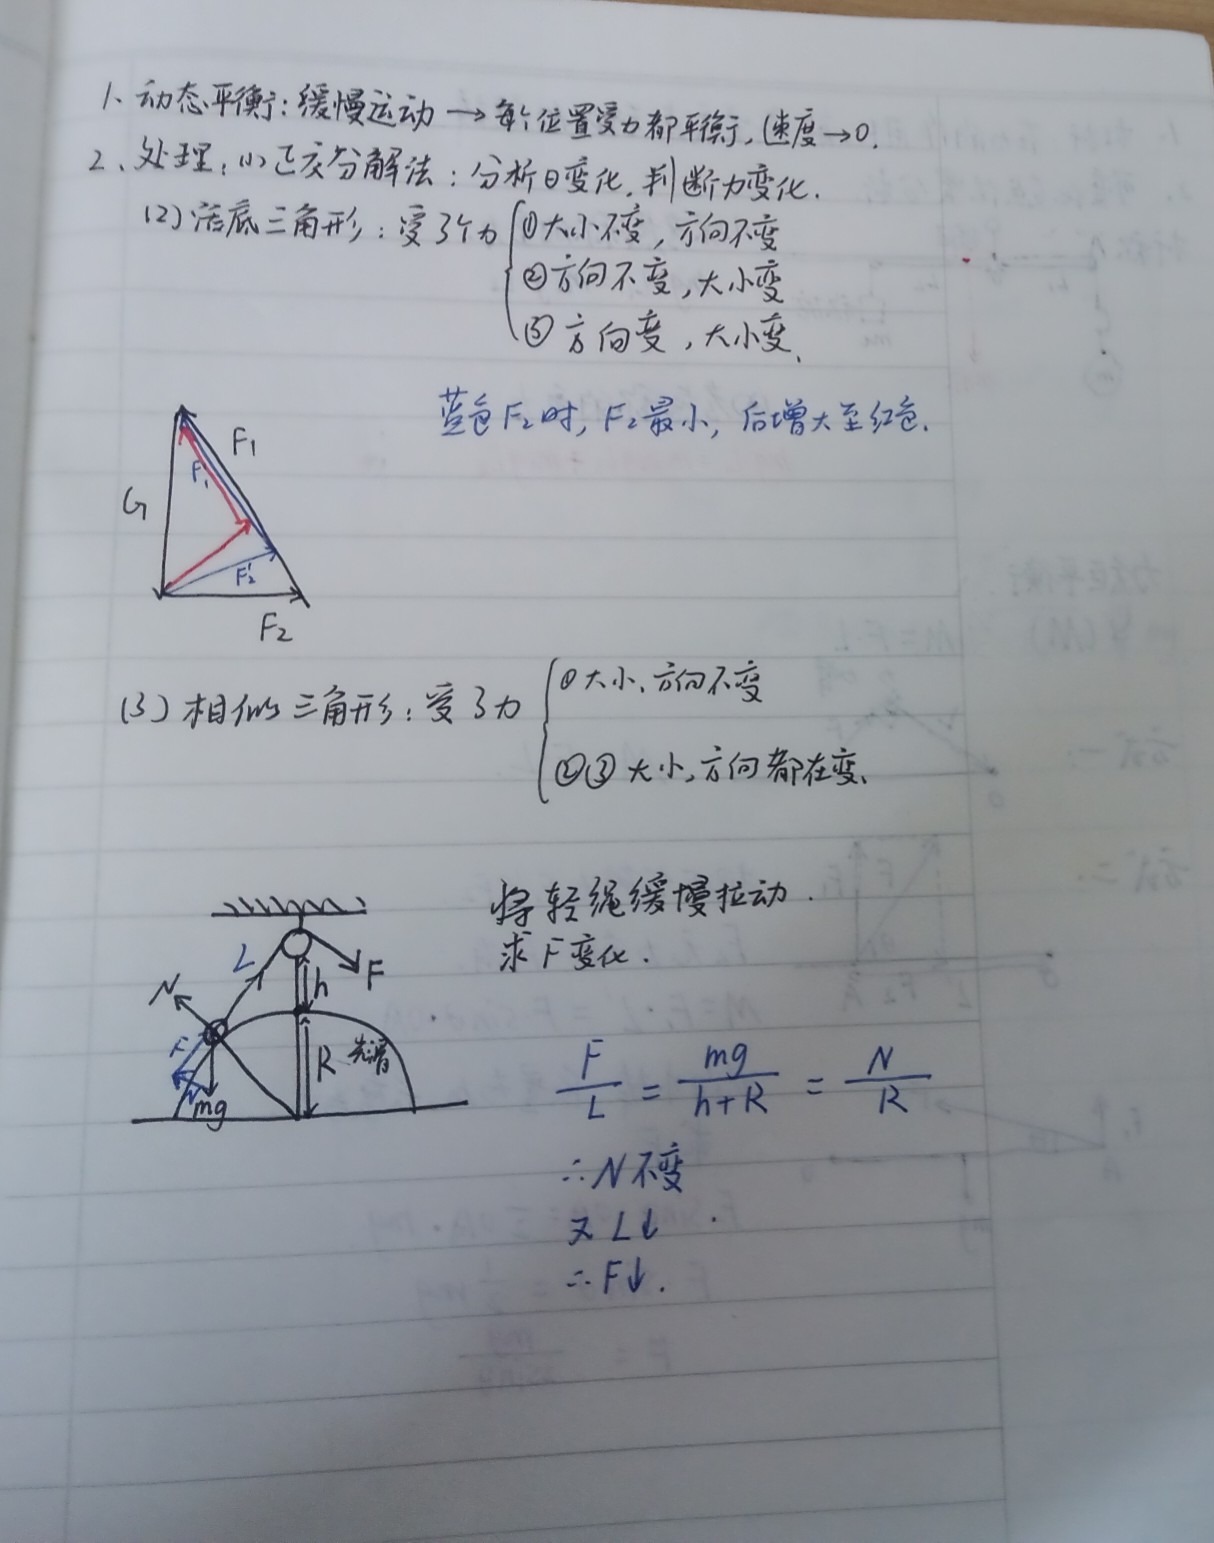 1、动态平衡：缓慢运动→每个位置受力都平衡，速度→0.
2、处理：(1)正交分解法：分析θ变化，判断力变化.
(2)活底三角形：受3个力
①大小不变，方向不变
②方向不变，大小变
③方向变，大小变、
蓝色F₂时，F₂最小，后增大至红色.
F₁
F₁
G
F₂'
F₂
(3)相似三角形：受3力
①大小、方向不变
②③大小，方向都在变、
将轻绳缓慢拉动.
求F变化.
L
F
N
h
F
R
光滑
N
mg
F/L = mg/h+R = N/R
∴N不变
又L↓
∴F↓.